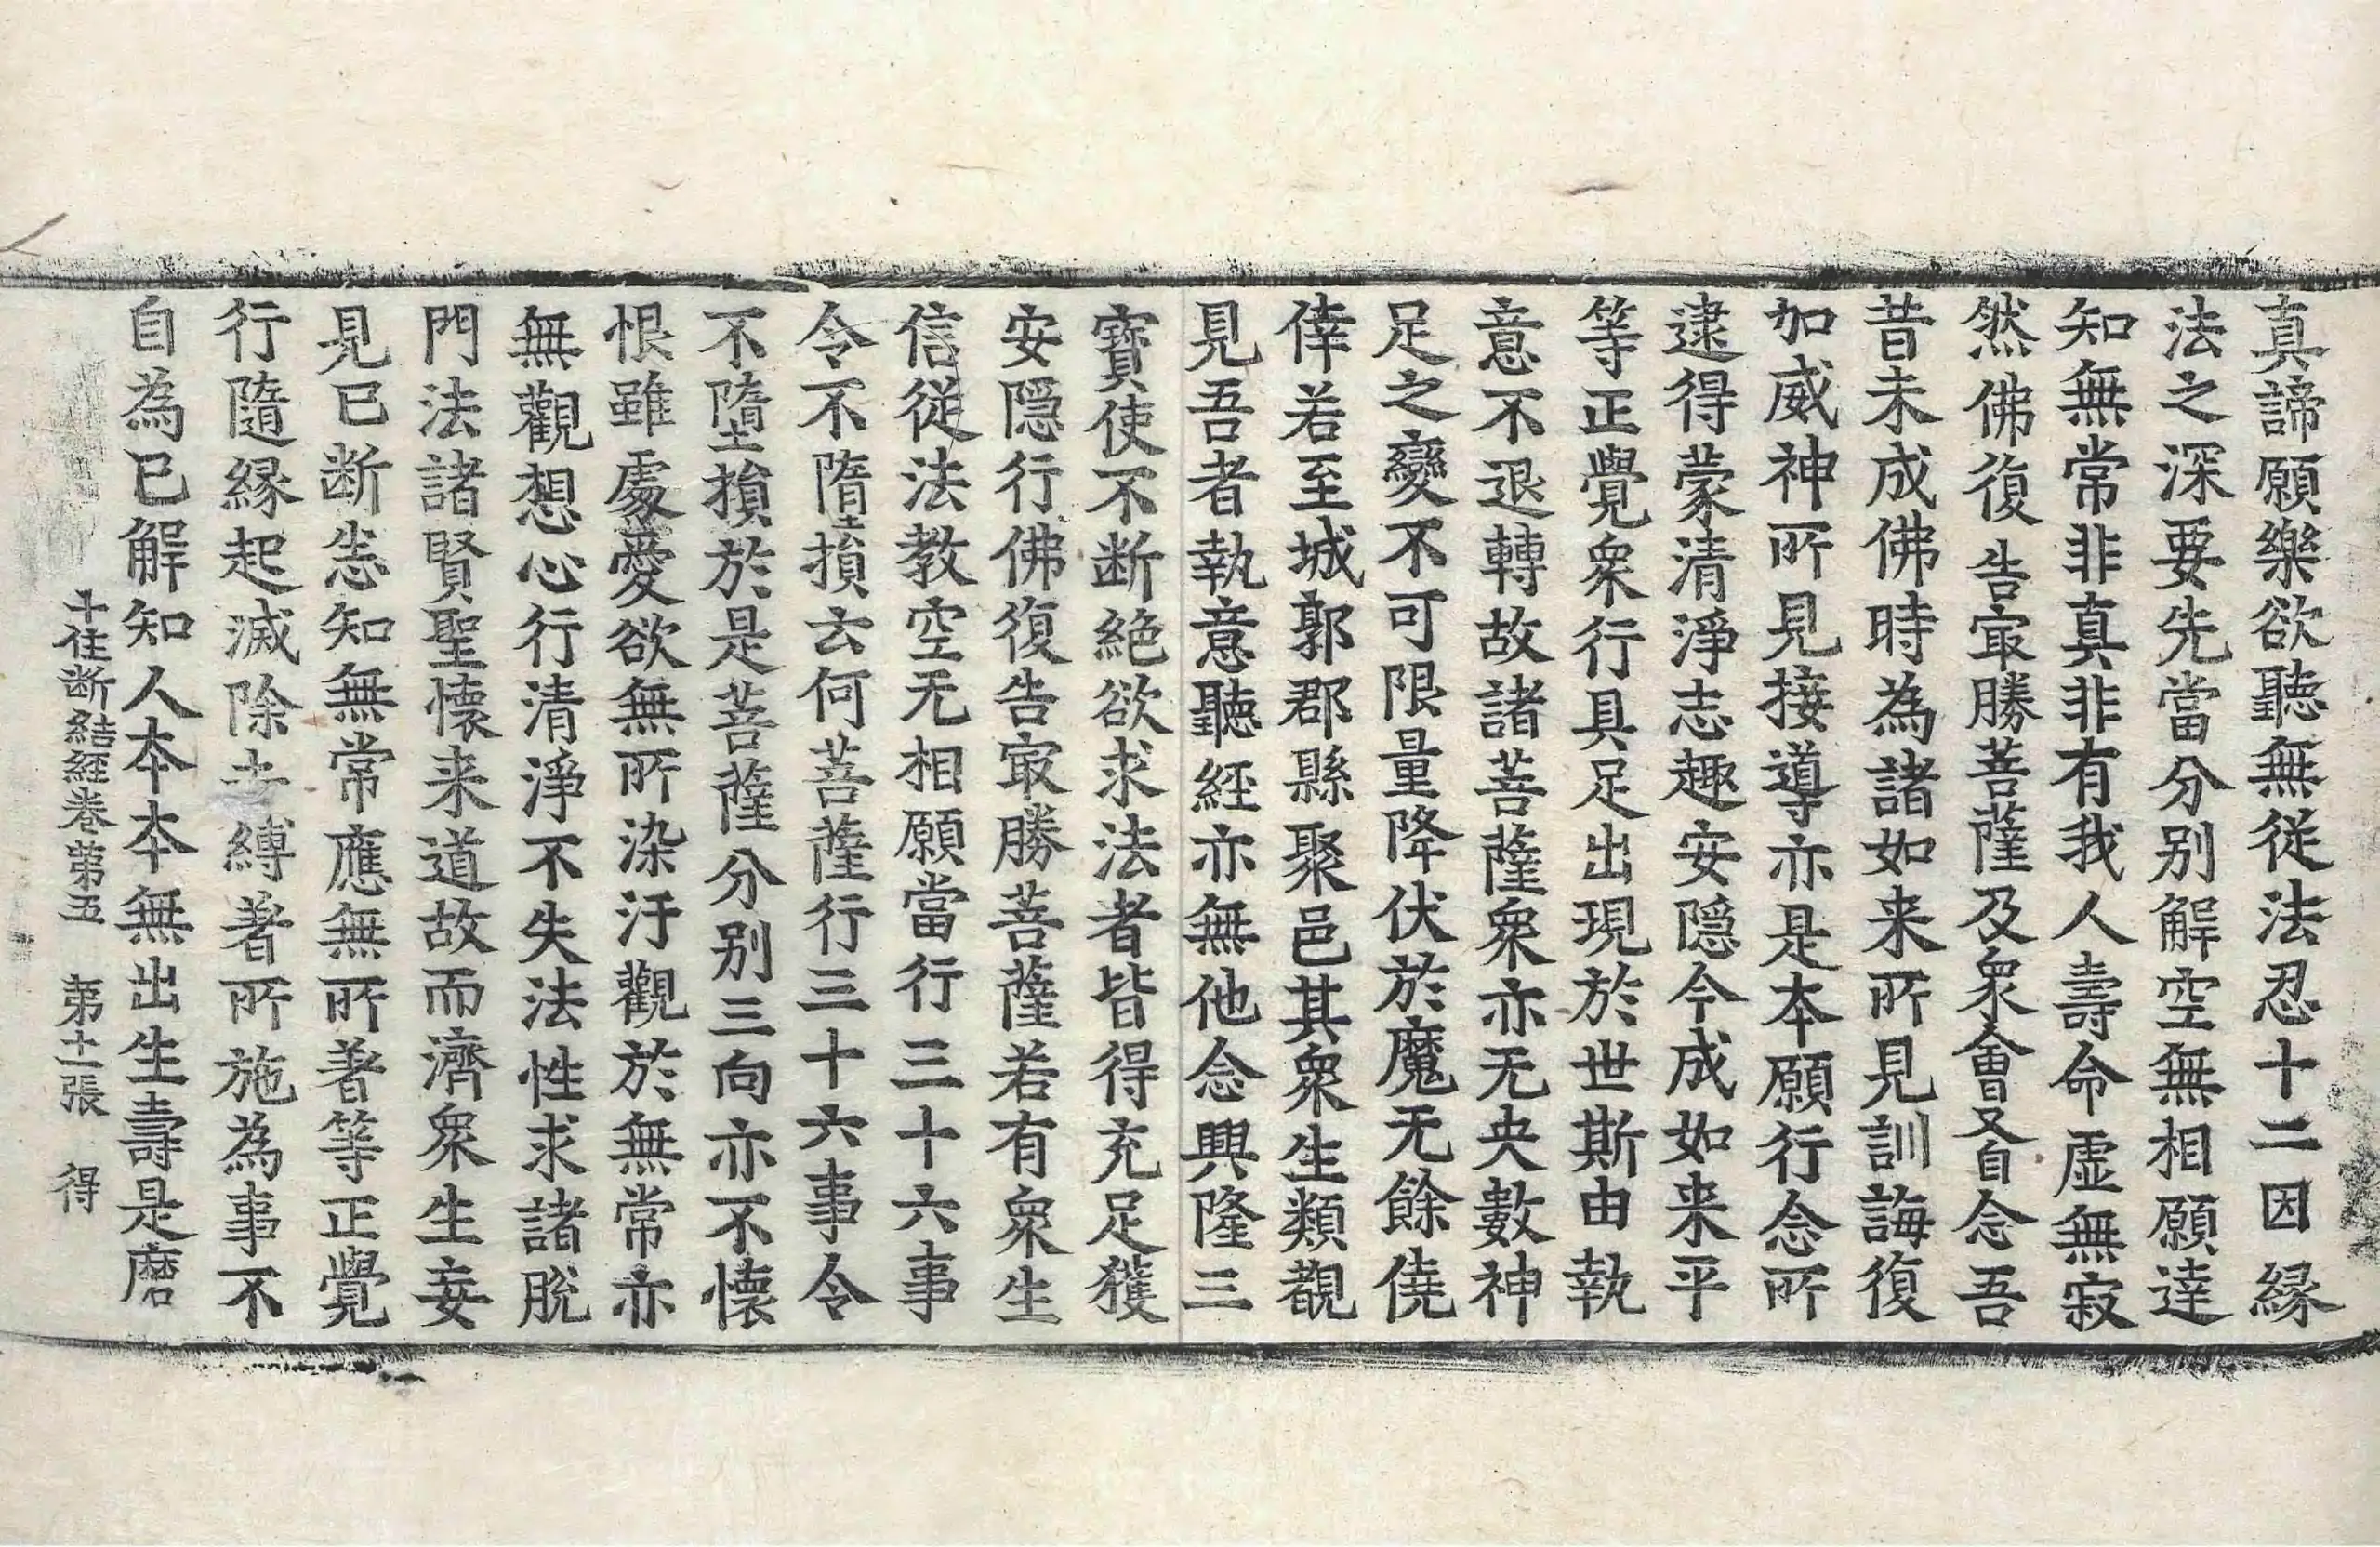 真諦願樂欲聽無從法忍十二因縁
法之深要先當分别解空無相願達
知無常非真非有我人壽命虚無寂
然佛復告㝡勝菩薩及衆會又自念吾
昔未成佛時為諸如来所見訓誨復
加威神所見接導亦是本願行念所
逮得蒙清淨志趣安隠今成如来平
等正覺衆行具足出現於世斯由執
意不退轉故諸菩薩衆亦无央數神
足之變不可限量降伏於魔无餘僥
倖若至城郭郡縣聚邑其衆生類覩
見吾者執意聽經亦無他念興隆三
寶使不断絶欲求法者皆得充足獲
安隠行佛復告㝡勝菩薩若有衆生
信従法教空无相願當行三十六事
令不墮損云何菩薩行三十六事令
不墮損於是菩薩分别三向亦不懐
恨雖處愛欲無所染汙觀於無常亦
無觀想心行清淨不失法性求諸脫
門法諸賢聖懐来道故而濟衆生妄
見已断恚知無常應無所著等正覺
行隨縁起滅除去縛著所施為事不
自為已解知人本本無出生壽是磨
十住断結經卷第五　第十一張　得